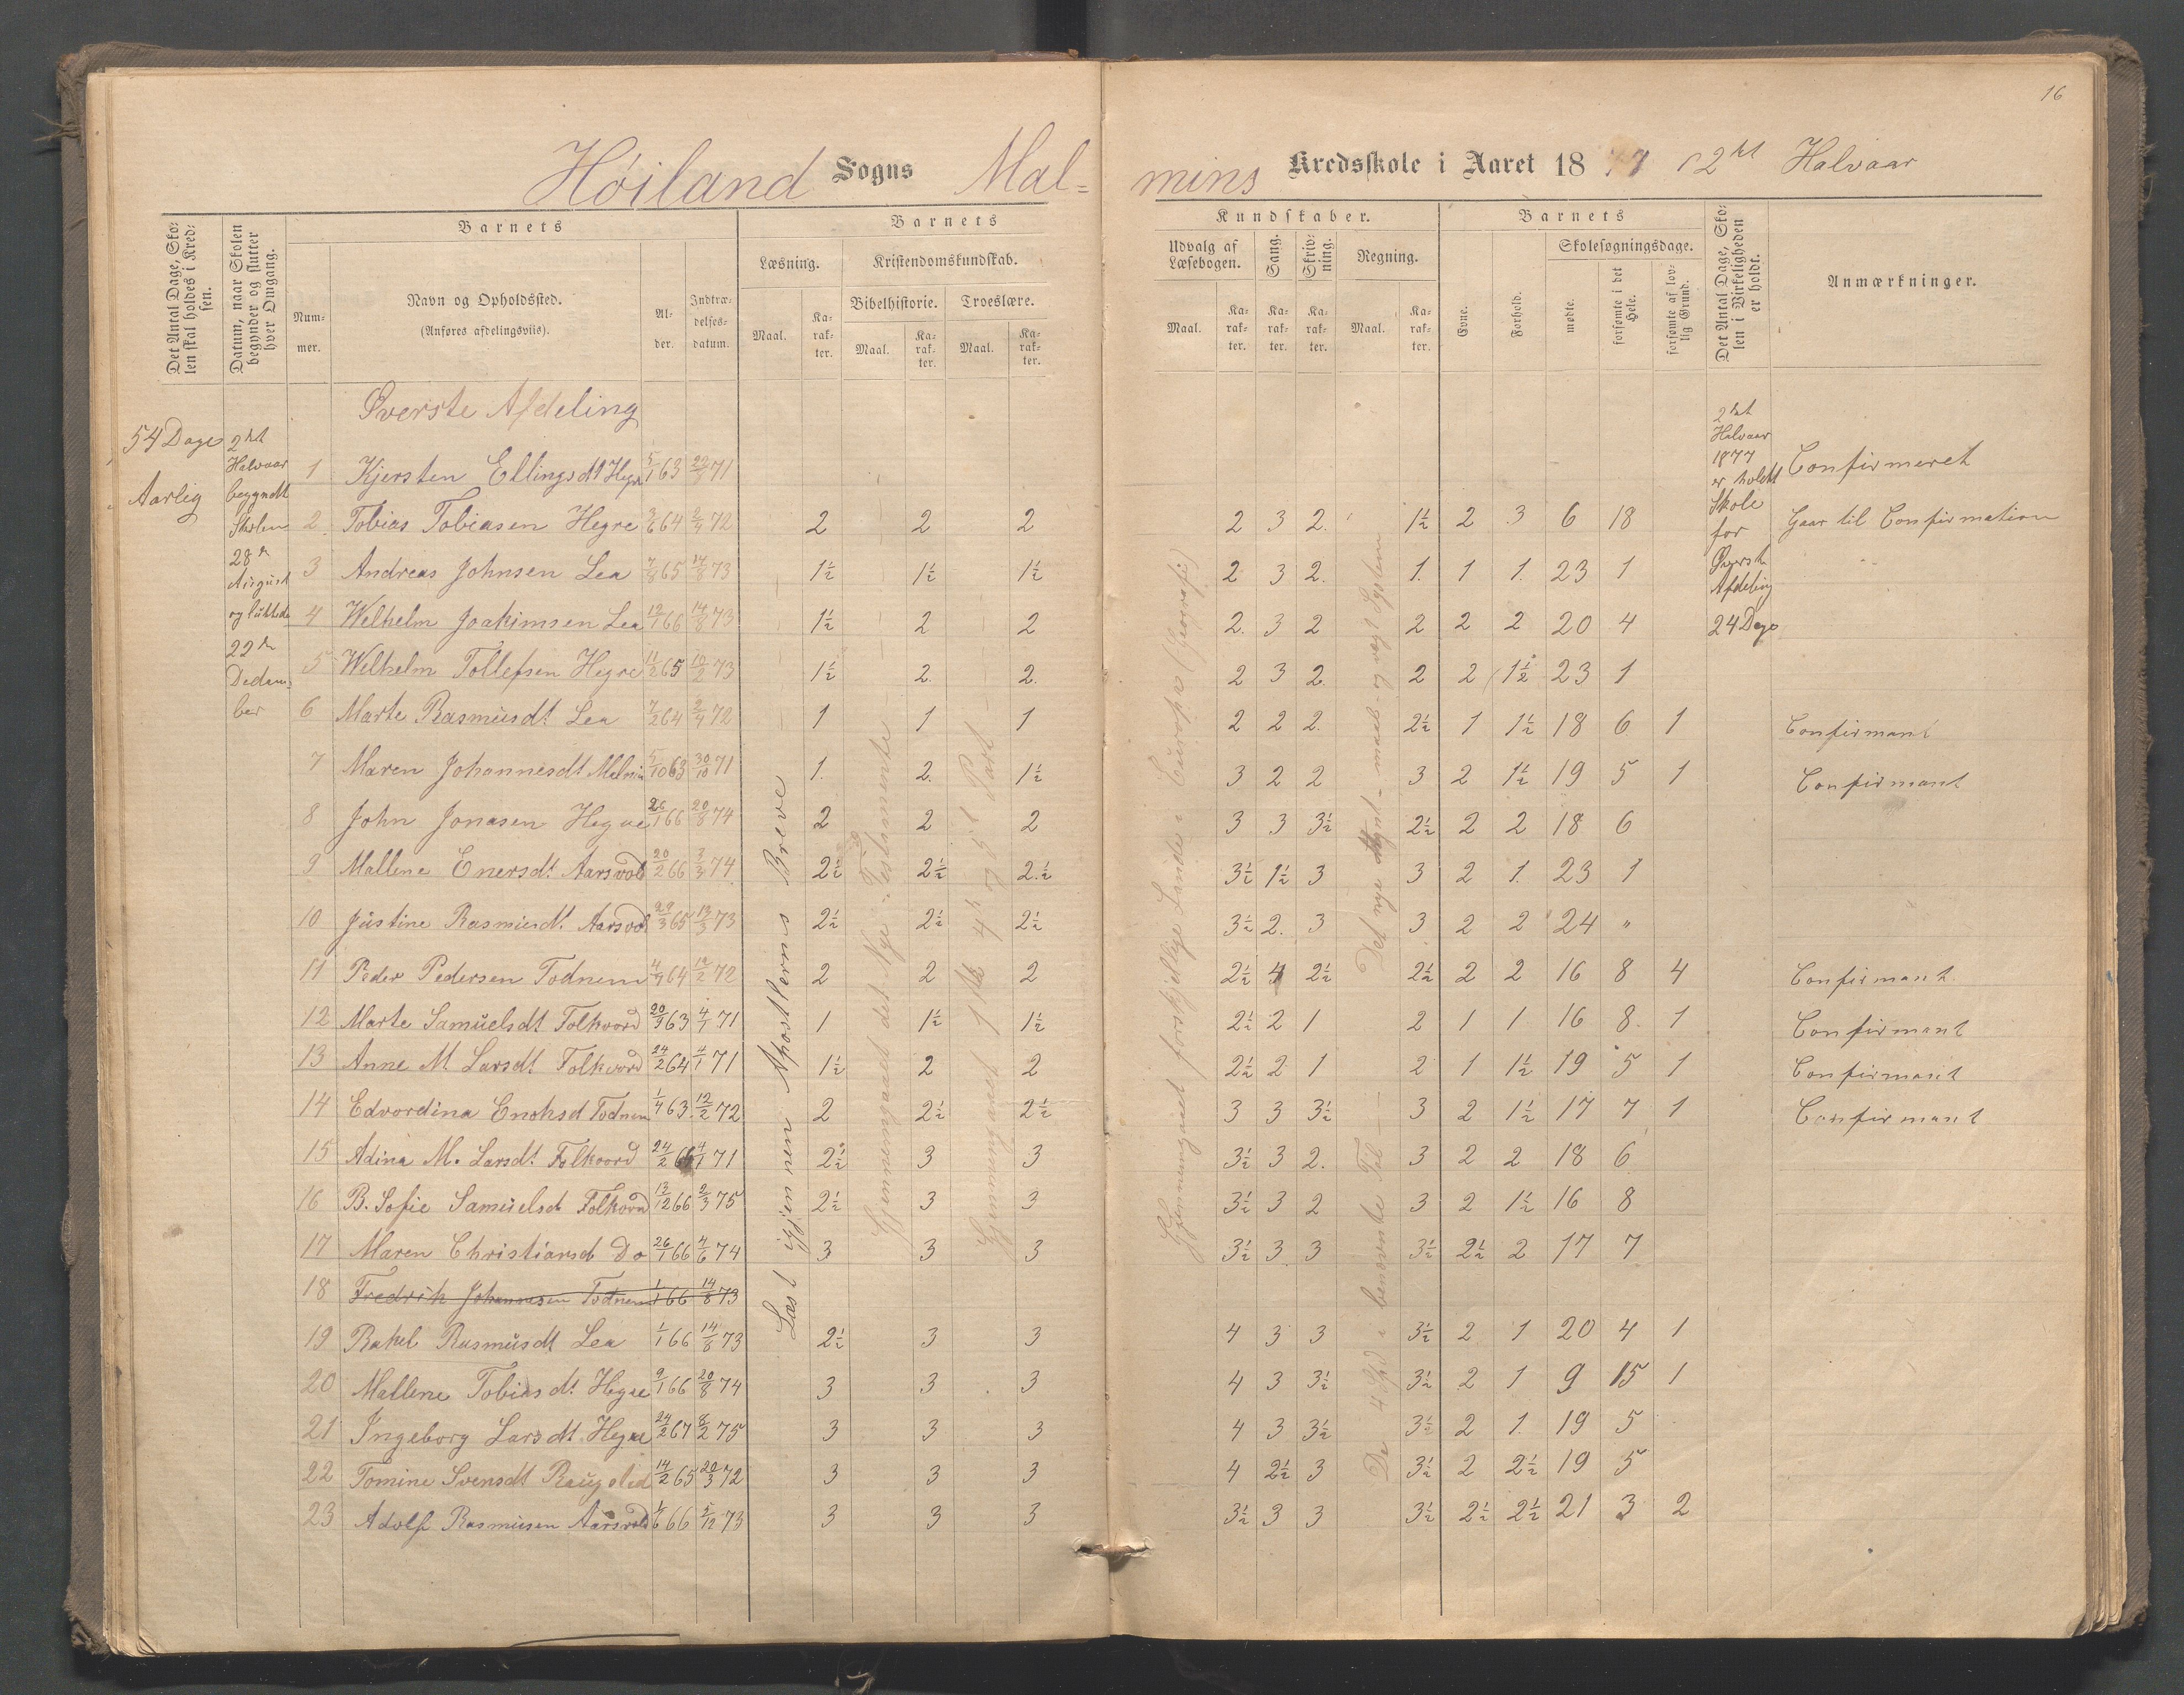 16
Höiland Sogns Mal=
mins Kredsskole i Aaret 1877 2det Halvaar
Det Antal Dage, Skolen skal holdes i Kredsen.
Datum, naar Skolen begynder og slutter hver Omgang.
Barnets
Nummer.
Navn og Opholdssted.
(Anføres afdelingsviis).
Alder.
Indtrædelsesdatum.
Barnets
Læsning.
Maal.
Karakter.
Kristendomskundskab.
Bibelhistorie.
Maal.
Karakter.
Troeslære.
Maal.
Karakter.
Kundskaber.
Udvalg af Læsebogen.
Maal.
Karakter.
Sang.
Karakter.
Skrivning.
Karakter.
Regning.
Maal.
Karakter.
Barnets
Evne.
Forhold.
Skolesøgningsdage.
mødte.
forsømte i det Hele.
forsømte af lovlig Grund.
Det Antal Dage, Skolen i Virkeligheden er holdt.
Anmærkninger.
54 Dage
Aarlig
2det
Halvaar
begyndt
Skolen
28de
August
og luttede
22de
Decem=
ber
Øverste Afdeling
1 Kjersten Ellingsdt Hegre 5/1 63 22/1 71 Confirmeret
2 Tobias Tobiasen Hegre 3/6 64 2/4 72 2 2 2 2 3 2. 1½ 2 3 6 18 Gaar til Confirmation
3 Andreas Johnsen Lea 7/8 65 14/8 73 1½ 1½ 1½ 2 3 2. 1. 1 1. 23 1
4 Welhelm Joakimsen Lea 12/1 66 14/8 73 1½ 2 2 2. 3 2 2 2 2 20 4
5 Welhelm Tollefsen Hegre 11/2 65 10/2 73 1½ 2. 2. 2 3 2. 2 2 1½ 23 1
6 Marte Rasmusdt Lea 7/2 64 2/4 72 1 1 1 2 2 2. 2½ 1 1½ 18 6 1 Confirmant
7 Maren Johannesdt Malmin 5/10 63 30/10 71 1. 2. 1½ 3 2 2 3 2 1½ 19 5 1 Confirmant
8 John Jonasen Hegre 26/1 66 20/8 74 2 2 2 3 3 3½ 2½ 2 2 18 6
9 Mallene Enersdt Aarsvold 20/2 66 3/3 74 2½ 2½ 2.½ 3½ 1½ 3 3 2 1. 23 1
10 Justine Rasmusdt Aarsvold 29/3 65 13/3 73 2½ 2½ 2½ 3½ 2. 3 3 2 2 24 "
11 Peder Pedersen Todnem 4/9 64 12/2 72 2 2 2 2½ 4 2½ 2½ 2 2 16 8 4 Confirmant
12 Marte Samuelsdt Folkvord 20/9 63 4/1 71 1 1½ 1½ 2½ 2 1 2 1 1 16 8. 1 Confirmant
13 Anne M Larsdt Folkvord 24/2 64 4/1 71 1½ 2 2 2½ 2 1 2 1 1½ 19 5 1 Confirmant
14 Edvordina Enohsd Todnem 1/4 63 12/2 72 2 2½ 2½ 3 3 3½ 3 2 1½ 17 7 1 Confirmant
15 Adina M. Larsdt Folkvord 24/2 66 4/1 71 2½ 3 3 3½ 3 2. 3 2 2 18 6
16 B. Sofie Samuelsd Folkvord 13/12 66 2/3 75 2½ 3 3 3½ 3 2 3 2 1½ 16 8
17 Maren Christiansd Do 26/1 66 4/6 74 3 3 3 3½ 3 3 3½ 2½ 2 17 7
18 Fredrik Johannesen Todnem 1/1 66 14/8 73
19 Rakel Rasmusdt Lea 1/1 66 14/8 73 2½ 3 3 4 3 3 3½ 2 1 20 4 1
20 Mallene Tobiasdt Hegre 9/1 66 20/8 74 3 3 3 4 3 3½ 3½ 2 1 9 15 1
21 Ingeborg Larsdt Hegre 24/2 67 8/2 75 3 3 3 4 3 3½ 3½ 2 1. 19 5
22 Tomine Svensdt 14/2 65 20/3 72 3 3 3 4 2½ 3 3½ 2 2½ 19 5
23 Adolf Rasmusen Aarsvold 1/6 66 5/12 73 3 3 3 3½ 3 3 3½ 2½ 2½ 21 3 2
Læst igjennem Apostlernes Breve
Gjennemgaaet det Nye Testamente
Gjennemgaaet 1ste 4de og 5te Part
Gjennemgaaet forskjellige Lande i Europa (Geografi)
De 4 Spd i benævnte Tal — Det nye Mynt- maal- og vægt System
2det
Halvaar
1877
er holdt
Skole
for
Øverste
Afdeling
24 Dage